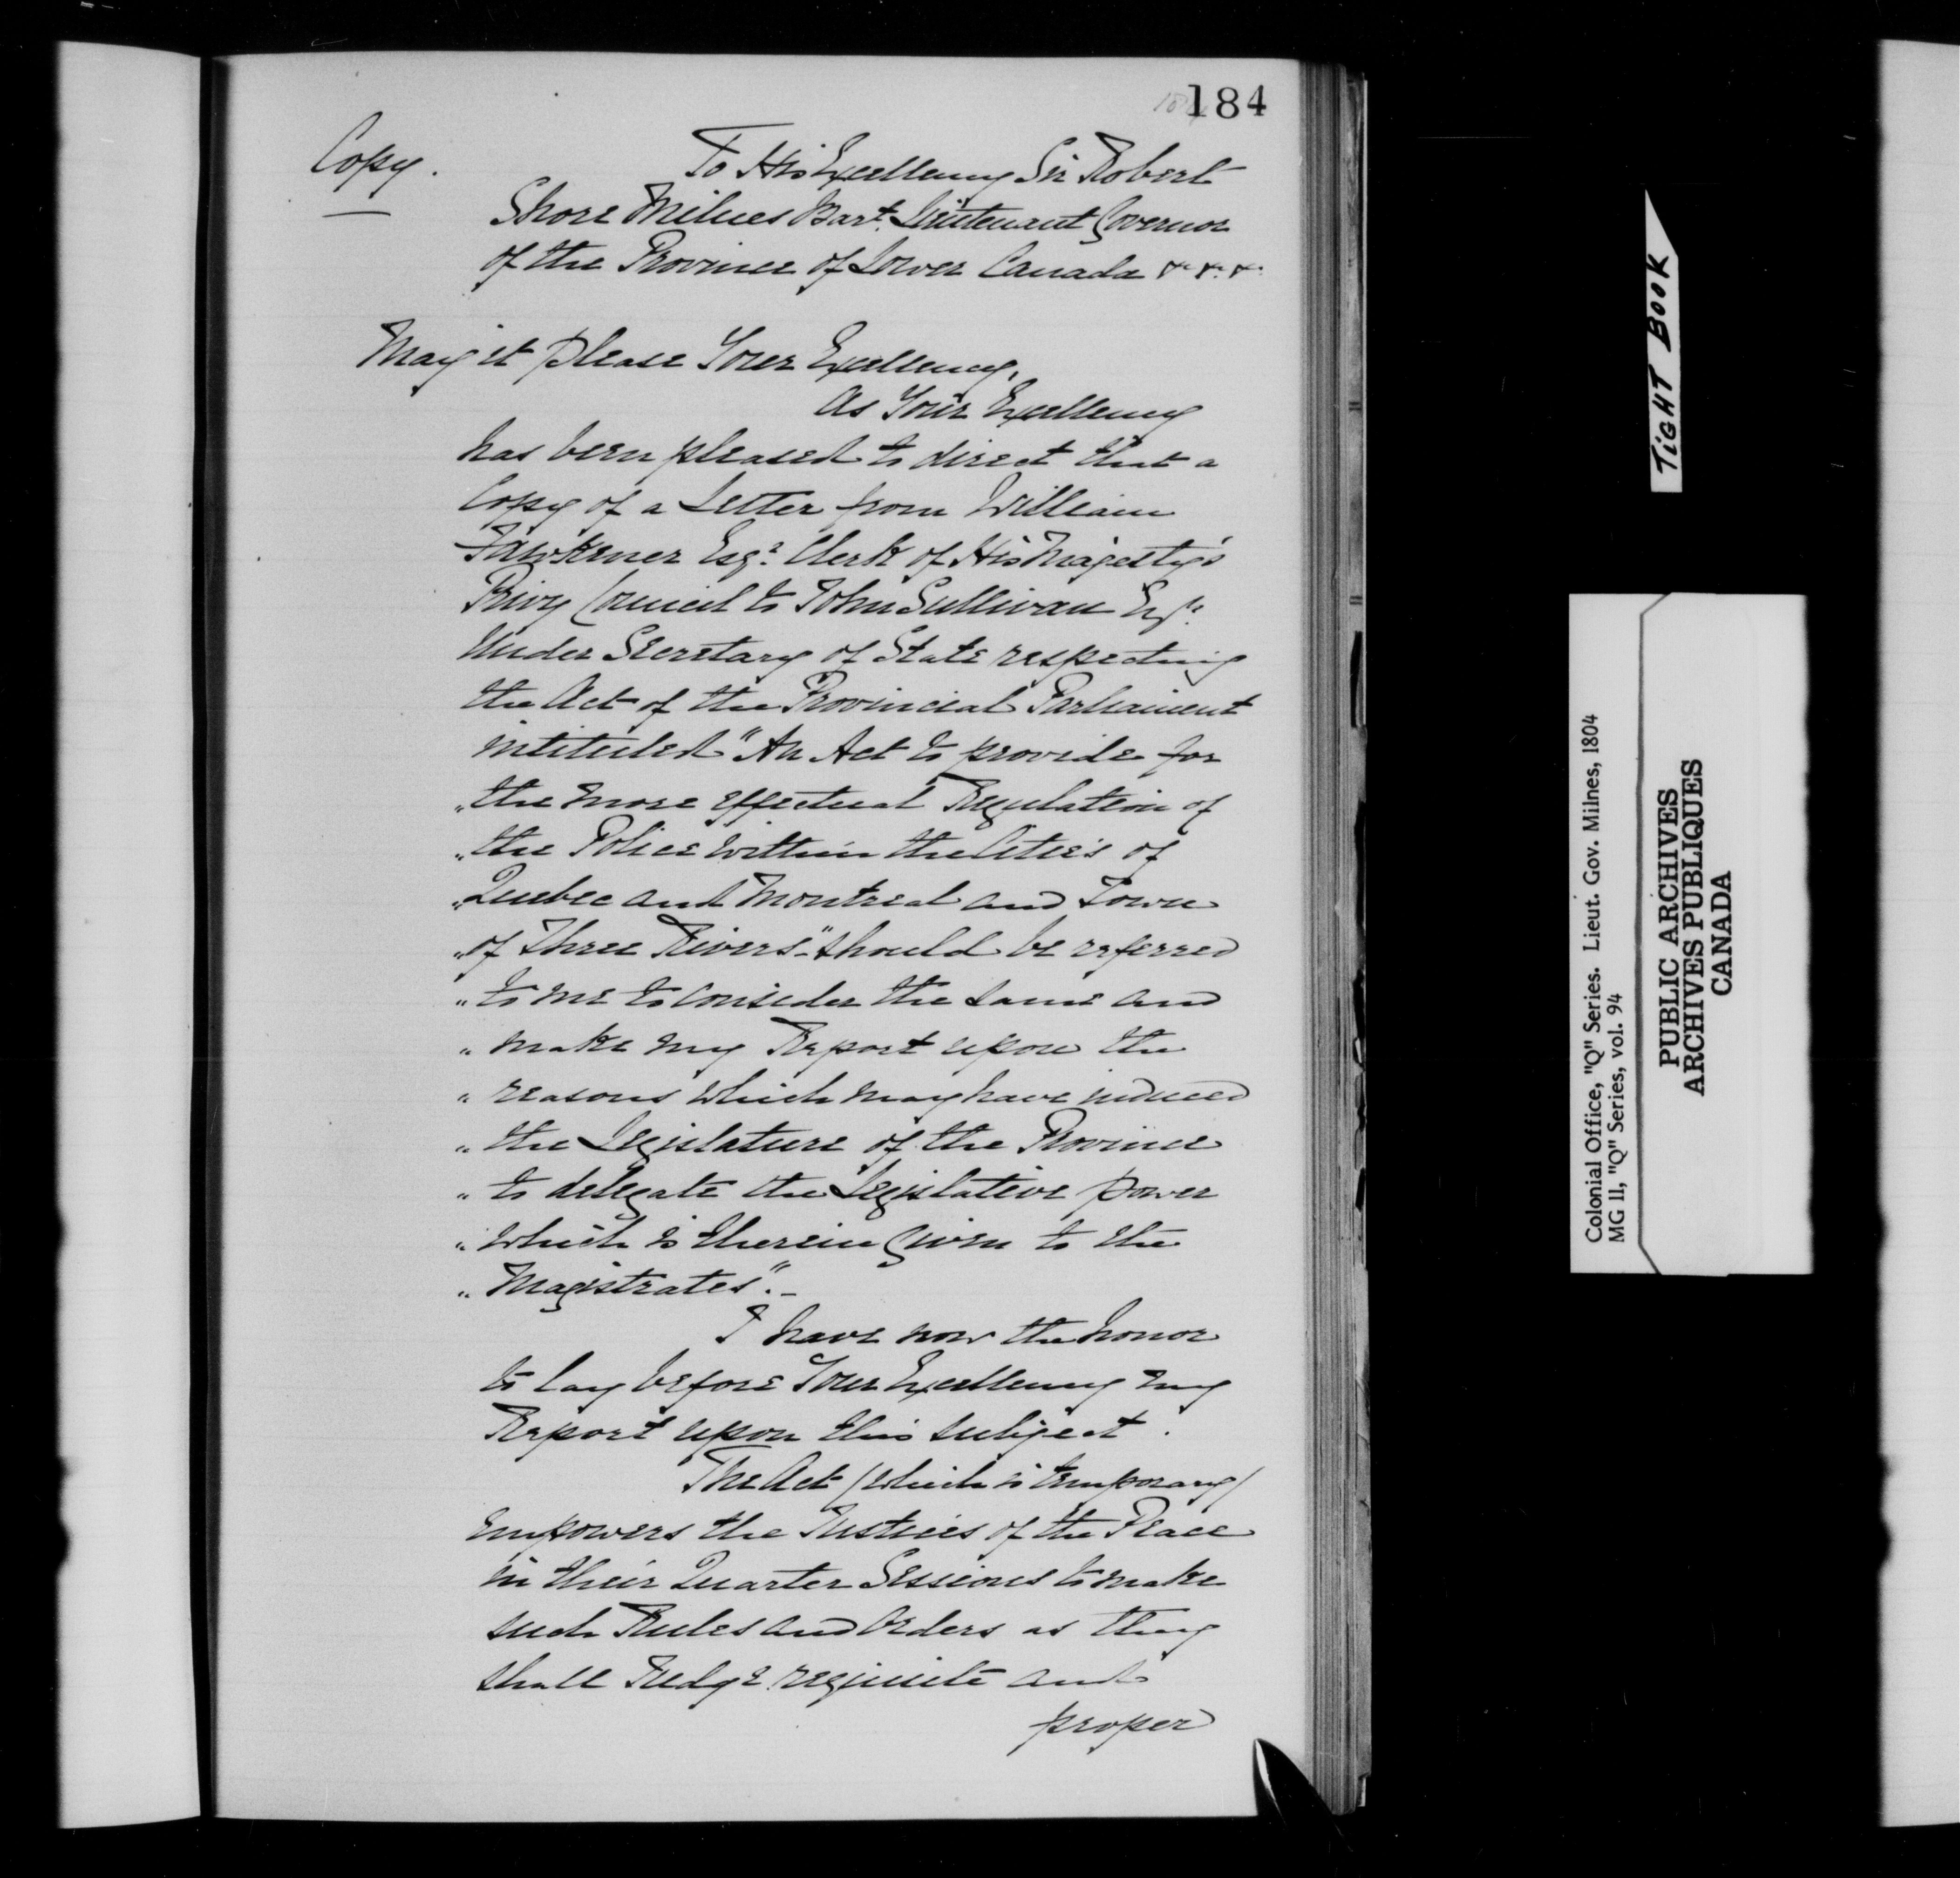 184
Copy.
To His Excellency Sir Robert
Shore Milnes Bart. Lieutenant Governor
of the Province of Lower Canada &c. &c. &c.
May it please Your Excellency,
As Your Excellency
has been pleased to direct that a
Copy of a Letter from William
Fawkener Esqr. Clerk of His Majesty's
Privy Council to John Sullivan Esqr.
Under Secretary of State respecting
the Act of the Provincial Parliament
intituled "An Act to provide for
"the more effectual Regulation of
"the Police within the Citie's of
"Quebec and Montreal and Town
"of Three Rivers"- should be referred
"to me to consider the same and
"make my Report upon the
"reasons which may have induced
"the Legislature of the Province
"to delegate the Legislative power
"which is therein given to the
"Magistrates".-
I have now the honor
to lay before Your Excellency my
Report upon this subject.
The Act (which is temporary)
Empowers the Justices of the Peace
in their Quarter Sessions to make
such Rules and Orders as they
shall Judge requisite and
proper
TIGHT BOOK
Colonial Office, "Q" Series. Lieut. Gov. Milnes, 1804
MG 11, "Q" Series, vol. 94
PUBLIC ARCHIVES
ARCHIVES PUBLIQUES
CANADA